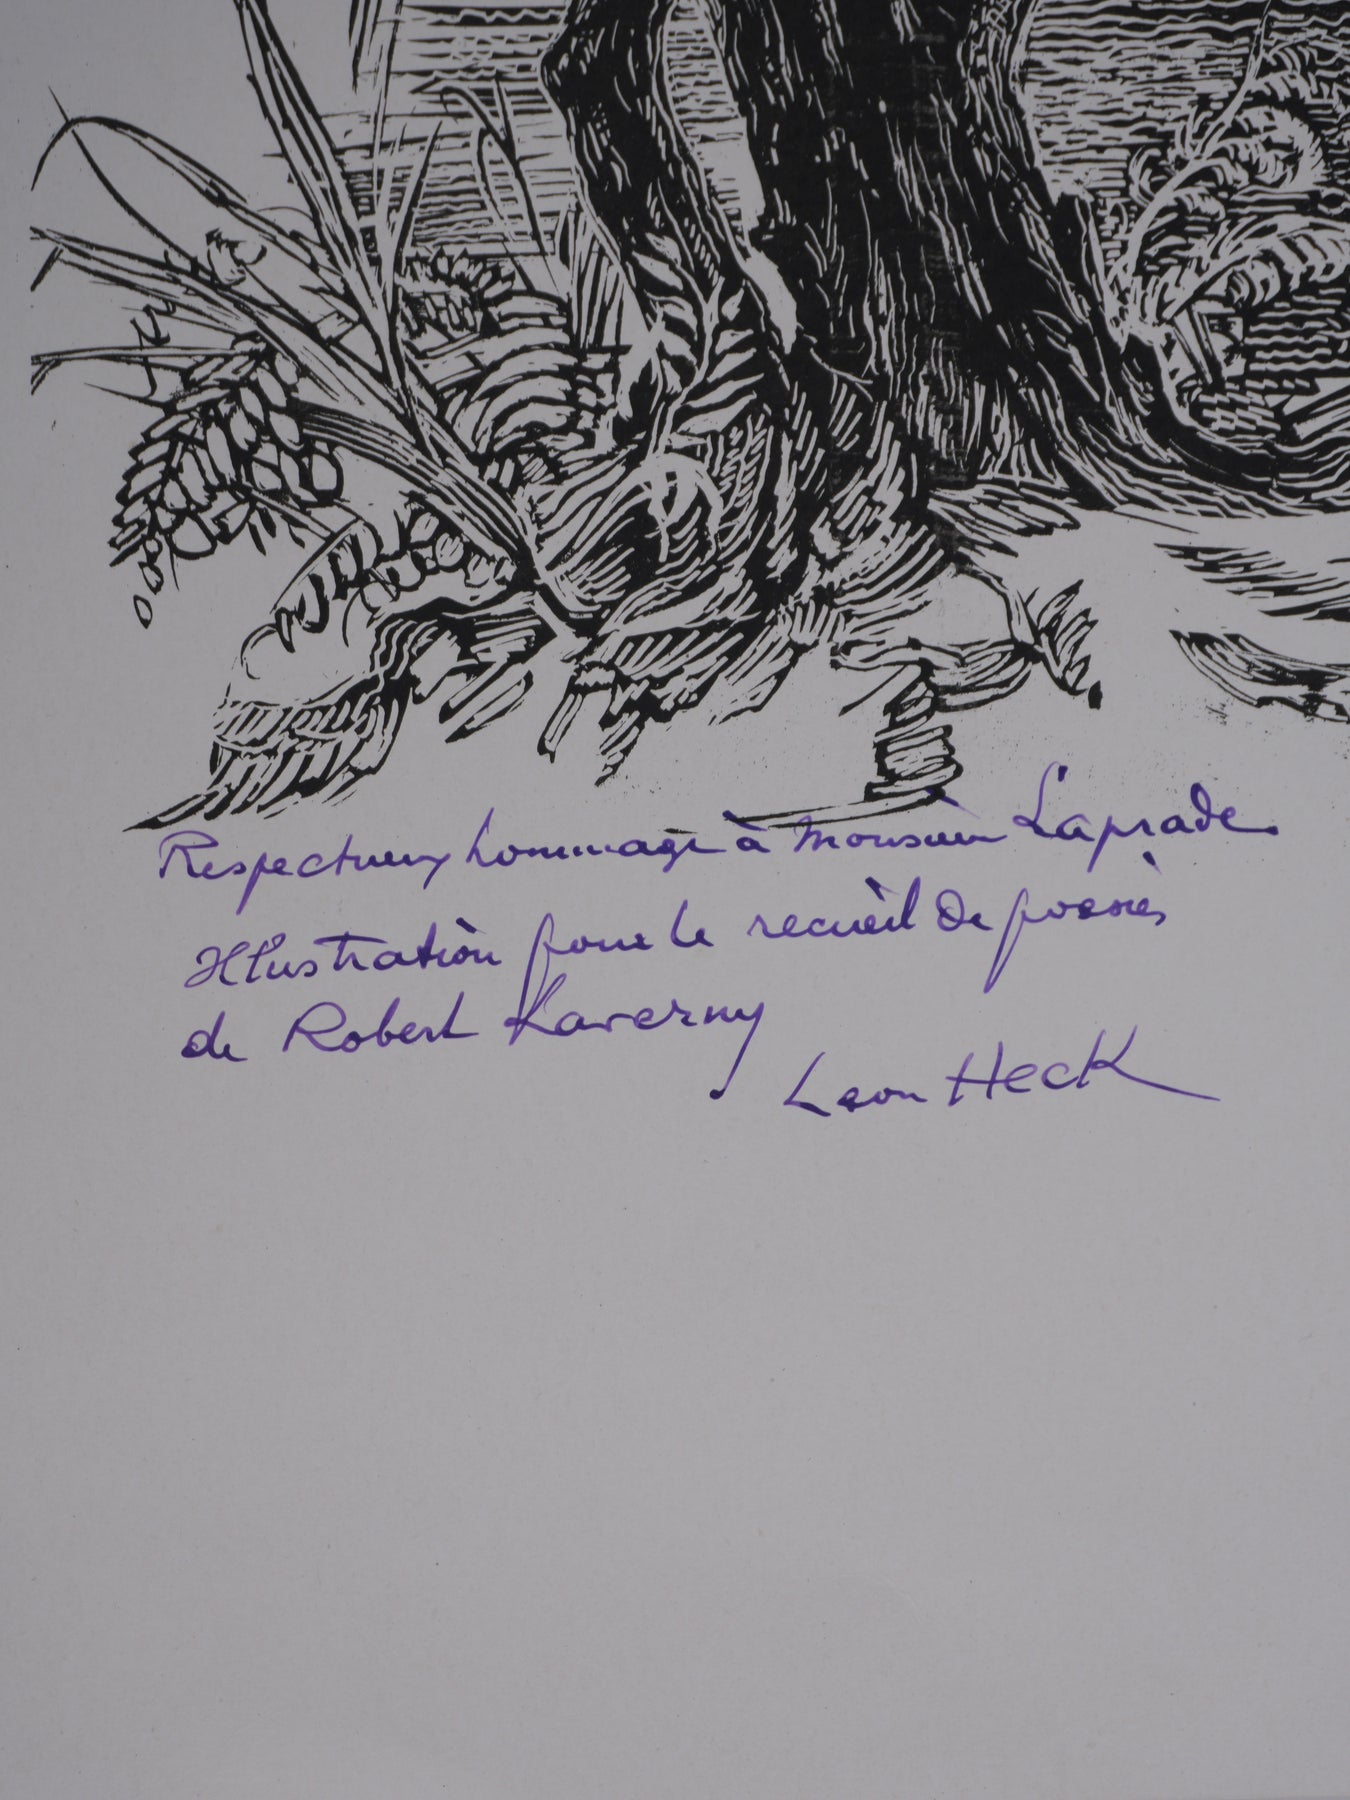 Respectueux hommage à Monsieur Laprade.
Illustration pour le recueil de poésies
de Robert Kaverny
Leon Heck